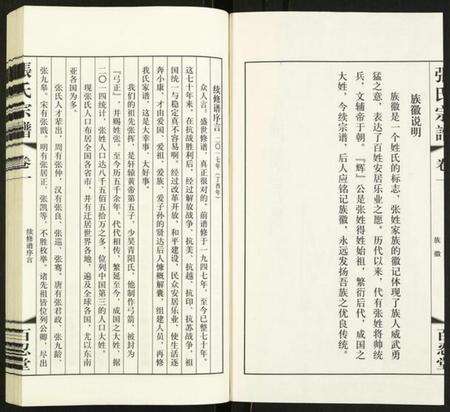 族徽说明
族徽是一个姓氏的标志，张姓家族的徽记体现了族人威武勇
猛之意，表达了百姓安居乐业之愿。历代以来，代有张姓将帅统
兵，文辅帝于朝。『辉』公是张姓得姓始祖，繁衍后代，成国之
大姓，今续宗谱，后人应铭记族徽，永远发扬吾族之优良传统。
张氏宗谱
卷一
族徽
百忍堂
续修谱序言
二〇一七年（丁酉年）
众人言。盛世修谱，真正很对的，前谱修于一九四七年，至今已整七十年。
这七十年来，在抗战胜利后，经过解放战争，抗美，抗越，抗印，抗苏战争，祖
国统一与稳定真不容易啊。经过改革开放，和平建设，民众安居乐业，使生活逐
奔小康，才由爱国，爱祖，爱族，爱子孙的贤达后人慷概解囊，组建人员，再修
我氏家谱，这是大幸事，大好事。
我们的祖先张挥，是轩辕黄帝第五子，少昊青阳氏，他制作弓箭，被封为
『弓正』，并赐姓张，至今历五千余年，代代相传，繁延至今，成国之大姓，据
二〇一四统计，张姓人口达八千五佰五拾万之多，位列中国第三的人口大姓。
现张氏人口布居全国各省市，并有迁居世界各地，遍及全球各国，尤以东南
亚各国为多。
张氏人才辈出，周有张仲，汉有张良，张骞，唐有张君政，张九龄，
张九皋，宋有张戬，明有张居正，张凯等，不胜枚举，诸先祖皆位列公卿，尽出
張氏宗譜
卷一
续修谱序言
百忍堂